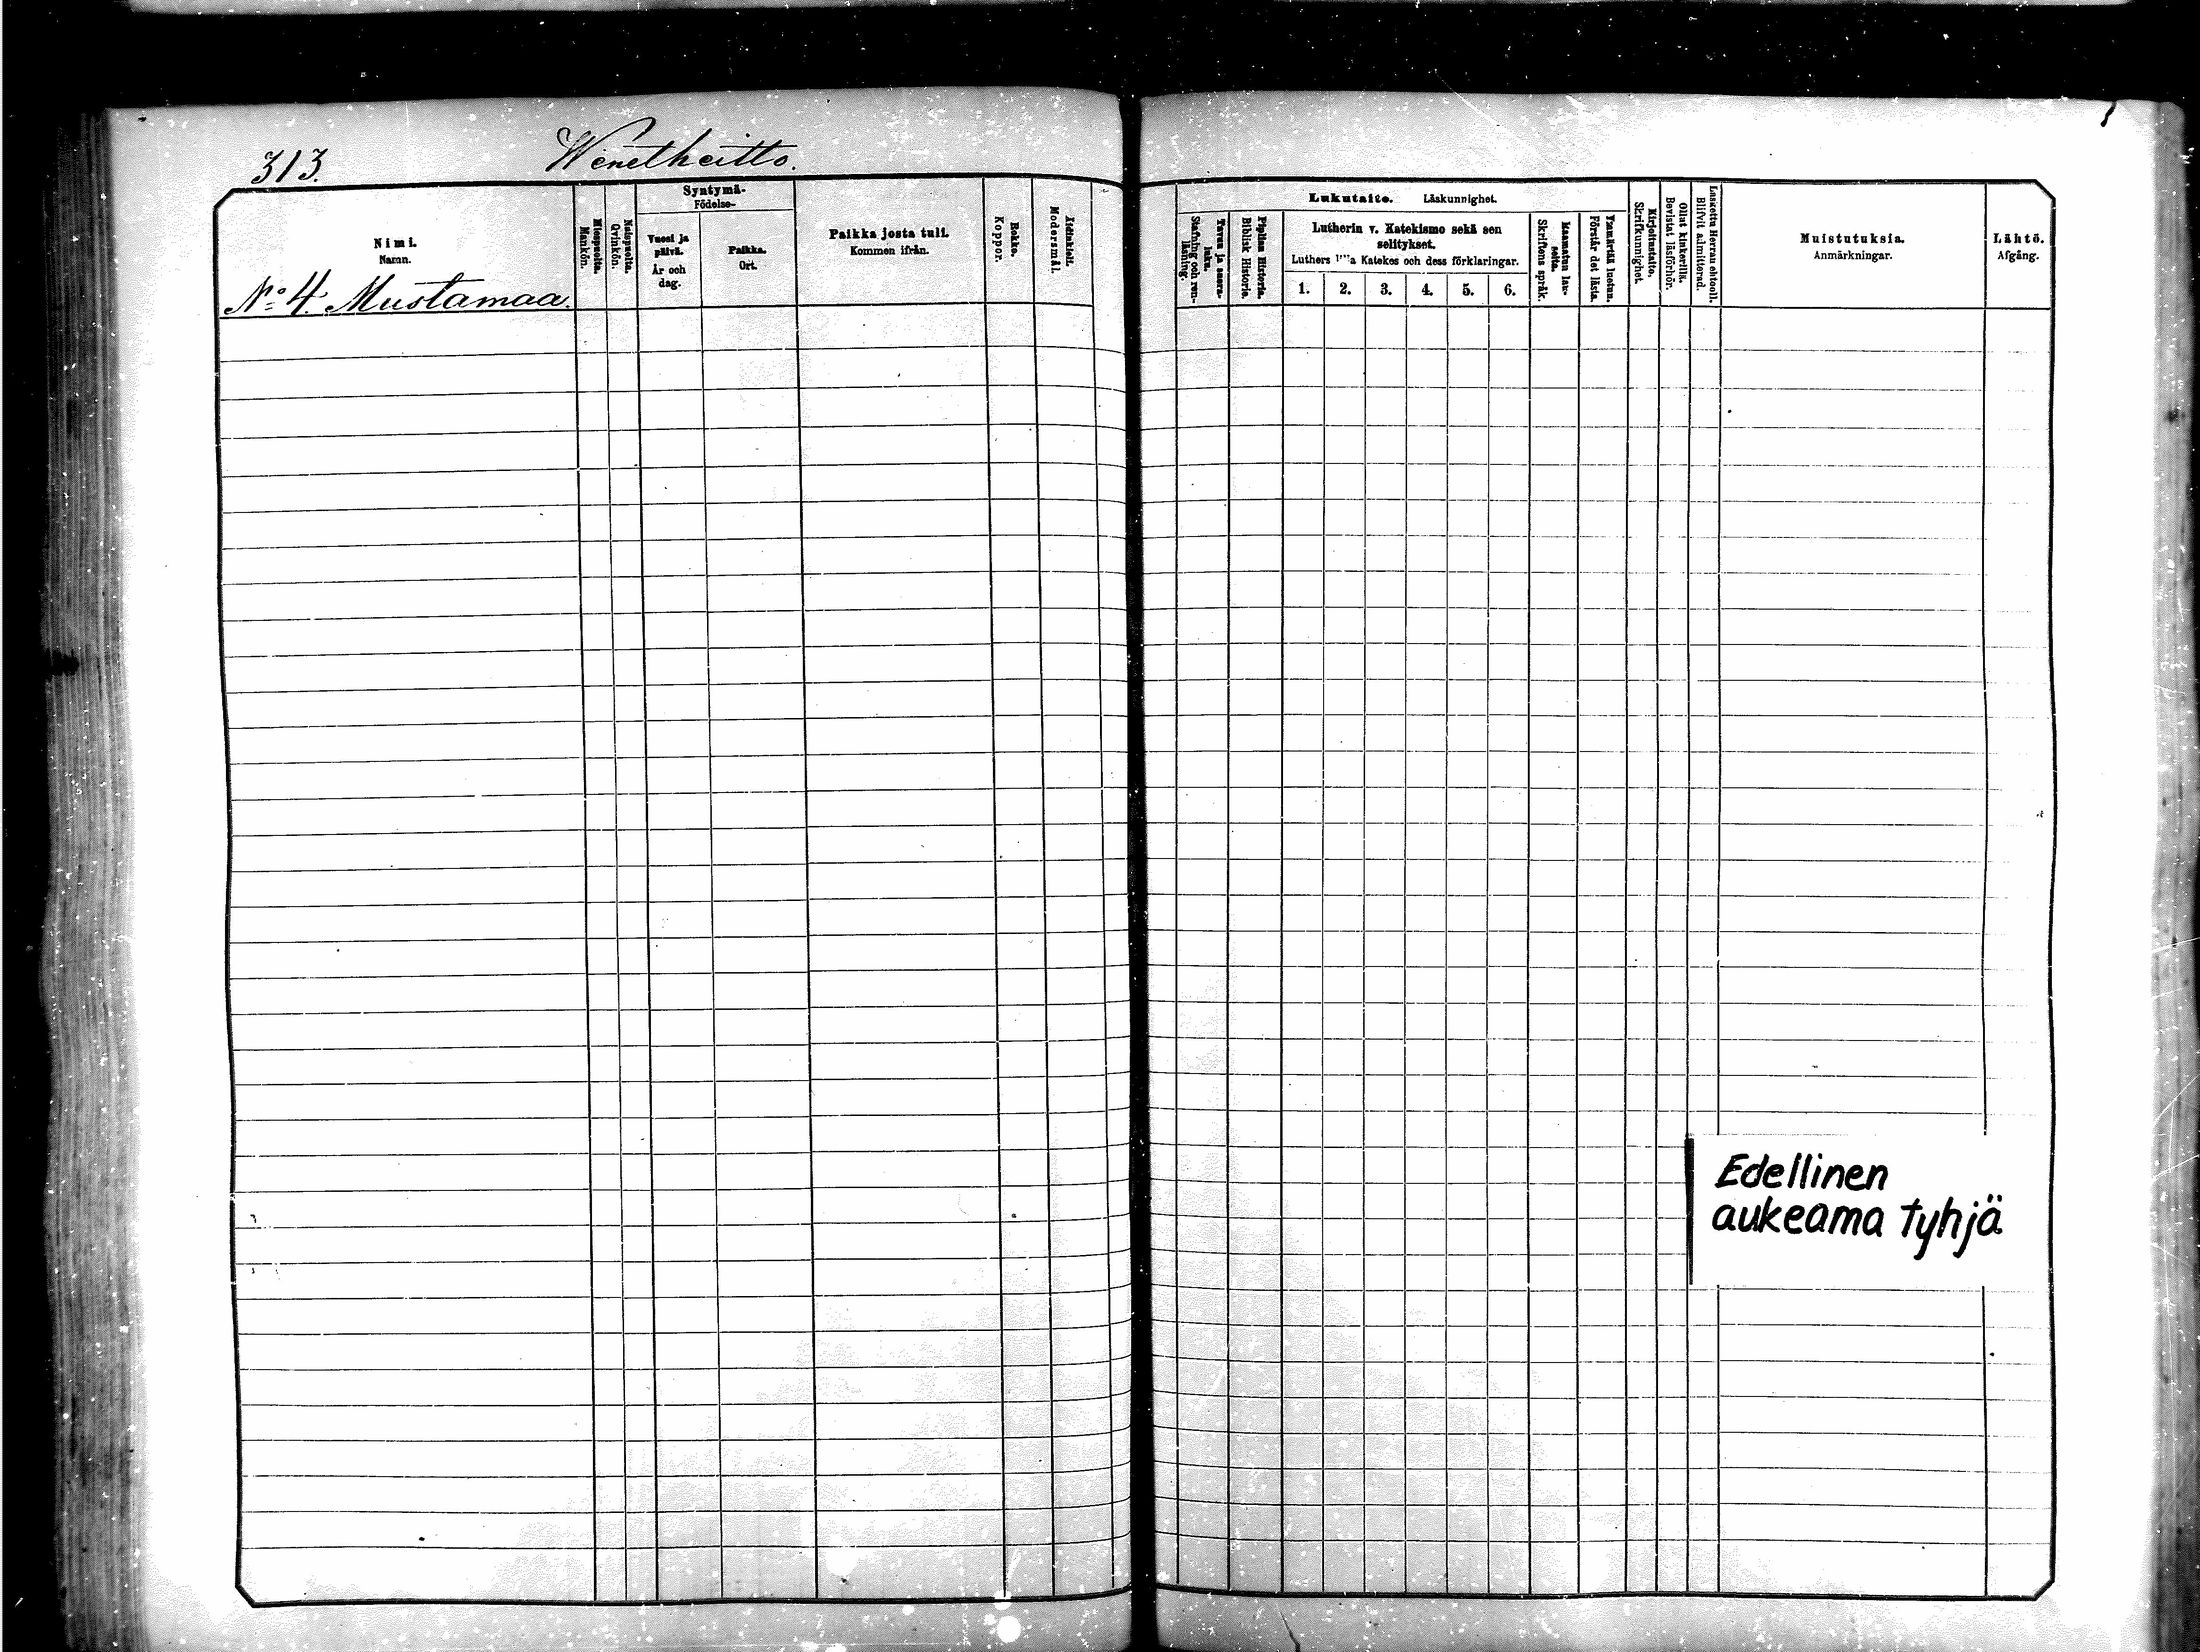 313.
Wenetheitto.
Nimi.
Namn.
Miespuolia.
Mankön.
Naispuolia.
Qvinkön.
Syntymä-
Födelse-
Vuosi ja
päivä.
År och
dag.
Paikka.
Ort.
Paikka josta tuli.
Kommen ifrån.
Rokko.
Koppor.
Äidinkieli.
Modersmål.
No 4. Mustamaa.
Lukutaito. Läskunnighet.
Tavuu ja sisera-
luku.
Stafning och ren-
läsning.
Piplian Historia.
Biblisk Historie.
Lutherin v. Katekismo sekä sen
selitykset.
Luthers Katekes och dess förklaringar.
1. 2. 3. 4. 5. 6.
Raamatun lau-
seita.
Skriftens språk.
Ymmärtää luetun.
Förstår det lästa.
Kirjoitustaito.
Skrifkunnighet.
Ollut kinkerillä.
Bevistat läsförhör.
Laskettu Herran ehtooll.
Blifvit admitterad.
Muistutuksia.
Anmärkningar.
Lähtö.
Afgång.
Edellinen
aukeama tyhjä